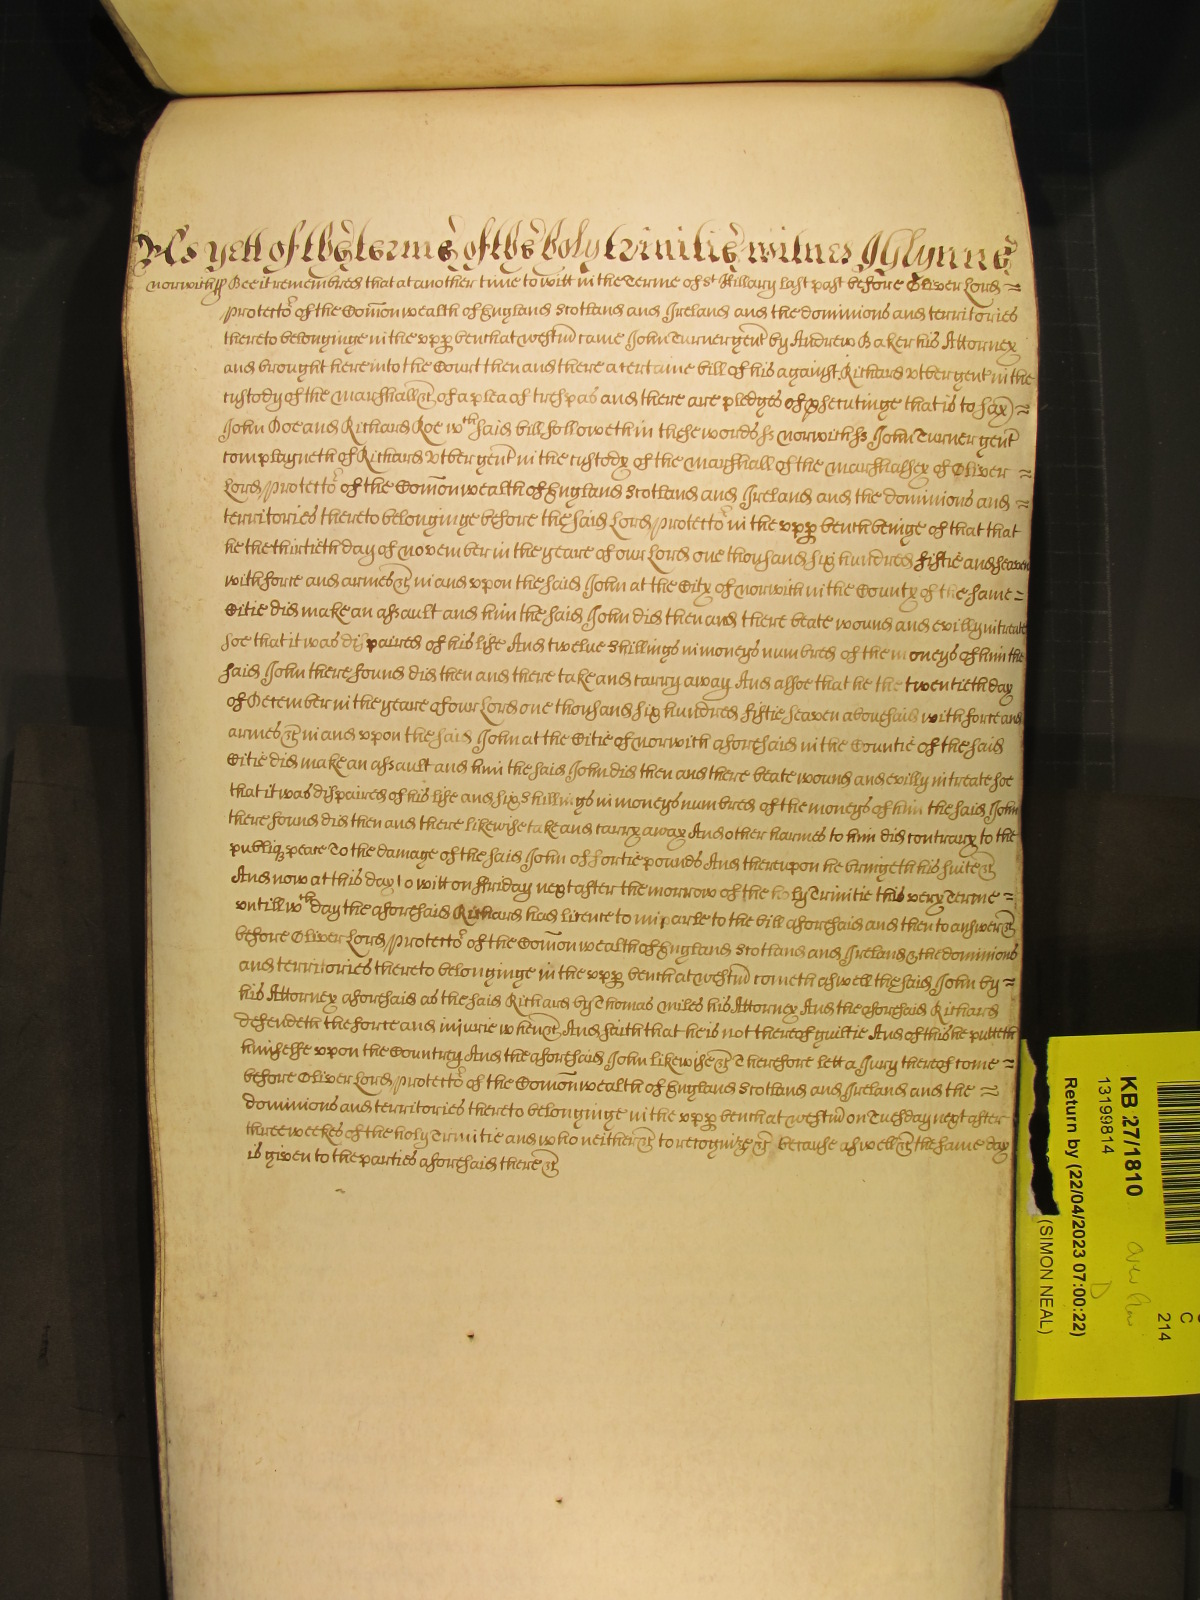 As yett of the terme of the holy trinitie witnes Glynne
Norwich ss Bee it remembred that at another time to witt in the Terme of st Hillary last past before Oliver Lord =
Protector of the Com̄onwealth of England Scotland and Ireland and the dominions and territories
thereto belonginge in the upp bench at westm̄ came John Turner gent by Andrew Baker his Attorney
and brought here into the Court then and there a certaine bill of his against Richard Utber gent in the
custody of the marshall &c of a plea of trespas and there are pledges of psecutinge that is to say =
John Doe and Richard Roe wch said bill followeth in these words ss Norwich ss John Turner gent
complayneth of Richard Utber gent in the custody of the marshall of the marshalsey of Oliver =
Lord Protector of the Com̄onwealth of England Scotland and Ireland and the dominions and =
territories thereto belonginge before the said Lord Protector in the upp bench beinge of that that
he the thirtieth day of november in the yeare of our Lord one thousand six hundred fiftie and seaven
with force and armes &c in and upon the said John at the City of norwich in the County of the same =
Citie did make an assault and him the said John did then and there beate wound and evilly intreate
soe that it was dispaired of his life And twelve shillings in moneys numbred of the moneys of him the
said John there found did then and there take and carry away And alsoe that he the twentieth day
of December in the yeare of our Lord one thousand six hundred fiftie seaven abovesaid with force and
armes &c in and upon the said John at the Citie of norwich aforesaid in the Countie of the said
Citie did make an assault and him the said John did then and there beate wound and evilly intreate soe
that it was dispaired of his life and six shillings in moneys numbred of the moneys of him the said John
there found did then and there likewise take and carry away And other harmes to him did contrary to the
publiq peace To the damage of the said John of fortie pounds And thereupon he bringeth his suite &c
And now at this day to witt on Friday next after the morrow of the holy Trinitie this very Terme =
untill wch day the aforesaid Richard had licence to imparle to the bill aforesaid and then to answer &c
before Oliver Lord Protector of the Com̄onwealth of England Scotland and Ireland & the dominions
and territories thereto belonginge in the upp bench at westm̄ cometh aswell the said John by =
his Attorney aforesaid as the said Richard by Thomas Miles his Attorney And the aforesaid Richard
defendeth the force and injurie when &c And saith that he is not thereof guiltie And of this he putteth
himselfe upon the Countrey And the aforesaid John likewise &c Therefore lett a Jury thereof come =
before Oliver Lord Protector of the Com̄onwealth of England Scotland and Ireland and the =
dominions and territories thereto belonginge in the upp bench at westm̄ on Tuesday next after
three weekes of the holy Trinitie and who neither &c to recognize &c because aswell &c the same day
is given to the parties aforesaid there &c
KB 27/1810
13199814
Return by (22/04/2023 07:00:22)
(SIMON NEAL)
D
C
214